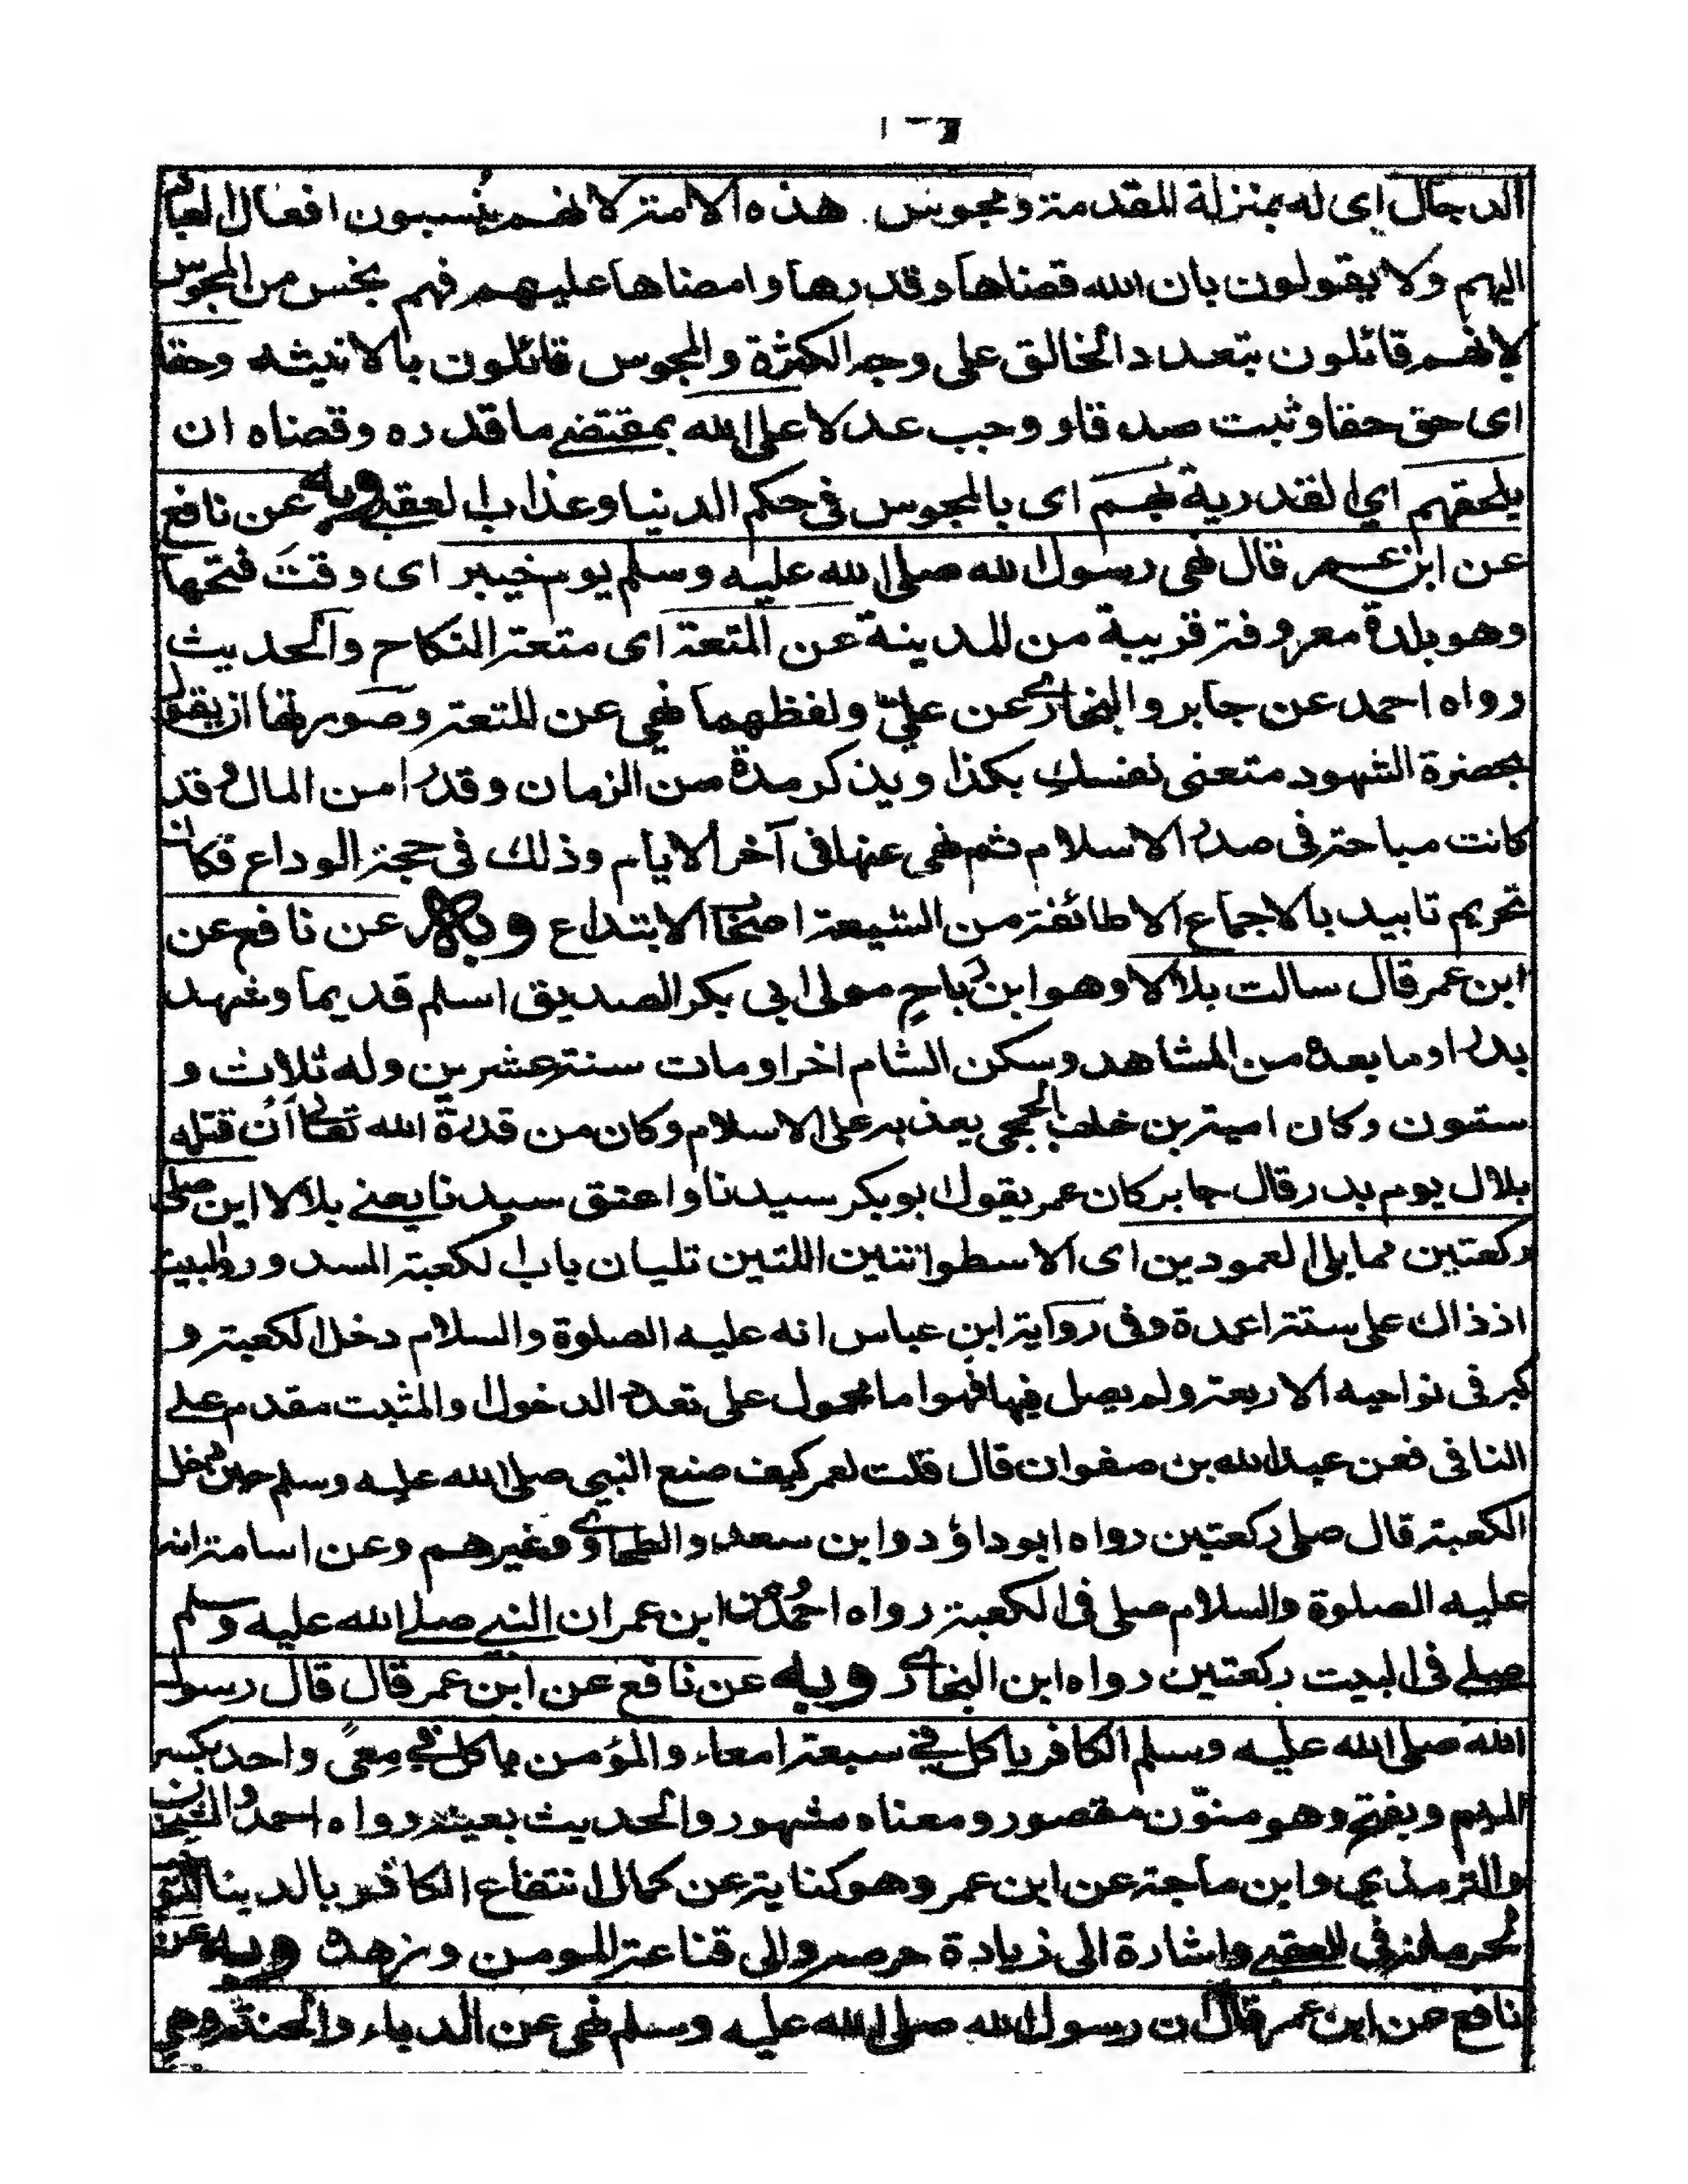 الدجال اى له بمنزلة المقدمة ومجوس هذه الامة لانهم ينسبون افعال العباد
اليهم ولا يقولون بان الله قضاها وقدرها وامضاها عليهم فهم بخس من المجوس
لانهم قائلون بتعدد الخالق على وجه الكثرة والمجوس قائلون بالاثنيته وحقا
اى حق حقا وثبت صدقا و وجب عدلا على الله بمقتضى ما قدره وقضاه ان
يلحقهم اي القدرية بهم اى بالمجوس فى حكم الدنيا وعذاب العقبى وبه عن نافع
عن ابن عمر قال نهى رسول الله صلى الله عليه وسلم يوم خيبر اى وقت فتحها
وهو بلدة معروفة قريبة من المدينة عن المتعة اى متعة النكاح والحديث
رواه احمد عن جابر والبخارى عن علىّ ولفظهما نهى عن المتعة وصورتها ان يقول
بحضرة الشهود متعنى نفسكِ بكذا ويذكر مدة من الزمان وقدرا من المال وقد
كانت مباحة فى صدر الاسلام ثم نهى عنها فى آخر الايام وذلك فى حجة الوداع فكان
تحريم تابيد بالاجماع الا طائفة من الشيعة اصحاب الابتداع وبه عن نافع عن
ابن عمر قال سالت بلالا وهو ابن رباحٍ مولى ابى بكر الصديق اسلم قديما وشهد
بدرا وما بعده من المشاهد وسكن الشام اخرا ومات سنة عشرين وله ثلاث و
ستون وكان امية بن خلف الجمحى يعذبه على الاسلام وكان من قدرة الله تعالى ان قتله
بلال يوم بدر قال جابر كان عمر يقول ابوبكر سيدنا واعتق سيدنا يعنى بلالا اين صلى
ركعتين مما يلى العمودين اى الاسطوانتين اللتين تليان باب الكعبة المسدود والبيت
اذ ذاك على ستة اعمدة وفى رواية ابن عباس انه عليه الصلوة والسلام دخل الكعبة و
كبر فى نواحيه الاربعة ولم يصل فيها فهو اما محمول على تعدد الدخول والمثبت مقدم على
النافى فعن عبد الله بن صفوان قال قلت لعمر كيف صنع النبى صلى الله عليه وسلم حين دخل
الكعبة قال صلى ركعتين رواه ابوداؤد وابن سعد والطحاوى وغيرهم وعن اسامة انه
عليه الصلوة والسلام صلى فى الكعبة رواه احمد وعن ابن عمر ان النبى صلى الله عليه وسلم
صلى فى البيت ركعتين رواه ابن البخارى وبه عن نافع عن ابن عمر قال قال رسول
الله صلى الله عليه وسلم الكافر ياكل فى سبعة امعاء والمؤمن ياكل فى مِعىً واحد بكسر
الميم وبفتح وهو منوّن مقصور ومعناه مشهور والحديث بعينه رواه احمد والشيخان
والترمذي وابن ماجة عن ابن عمر وهو كناية عن كمال انتفاع الكافر بالدينا
فى العقبى واشارة الى زيادة حرصه والى قناعة المومن وزهده وبه عن
نافع عن ابن عمر قال ان رسول الله صلى الله عليه وسلم نهى عن الدباء والحنتم وهى